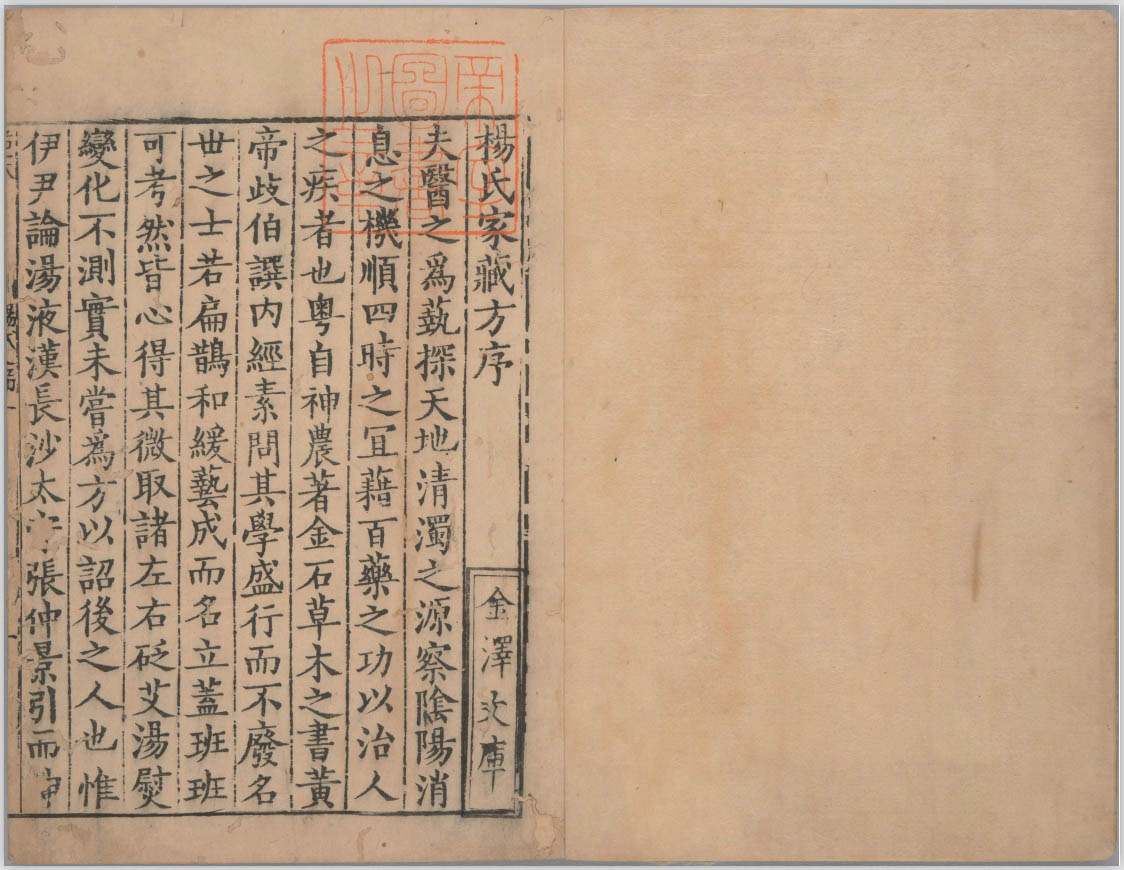 楊氏家藏方序
金澤文庫
夫醫之爲蓺探天地清濁之源察陰陽消
息之機順四時之冝藉百藥之功以治人
之疾者也粤自神農著金石草木之書黄
帝歧伯譔内經素問其學盛行而不廢名
世之士若扁鵲和緩藝成而名立蓋班班
可考然皆心得其微取諸左右砭艾湯熨
變化不測實未嘗爲方以詔後之人也惟
伊尹論湯液漢長沙太守張仲景引而伸
帝室圖書之章